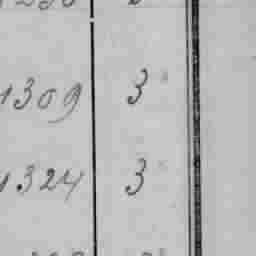 1309 3
1324 3